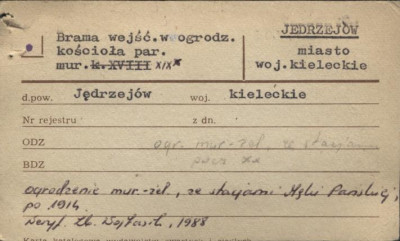 Brama wejść.w ogrodz.
kościoła par.
mur. k.XVIII XIX
JĘDRZEJÓW
miasto
woj.kieleckie
d.pow. Jędrzejów woj. kieleckie
Nr rejestru z dn.
ODZ ogr. mur-żel, ze stacjami
BDZ XX
ogrodzenie mur-żel, ze stacjami Męki Pańskiej,
po 1914
Weryf. 1988